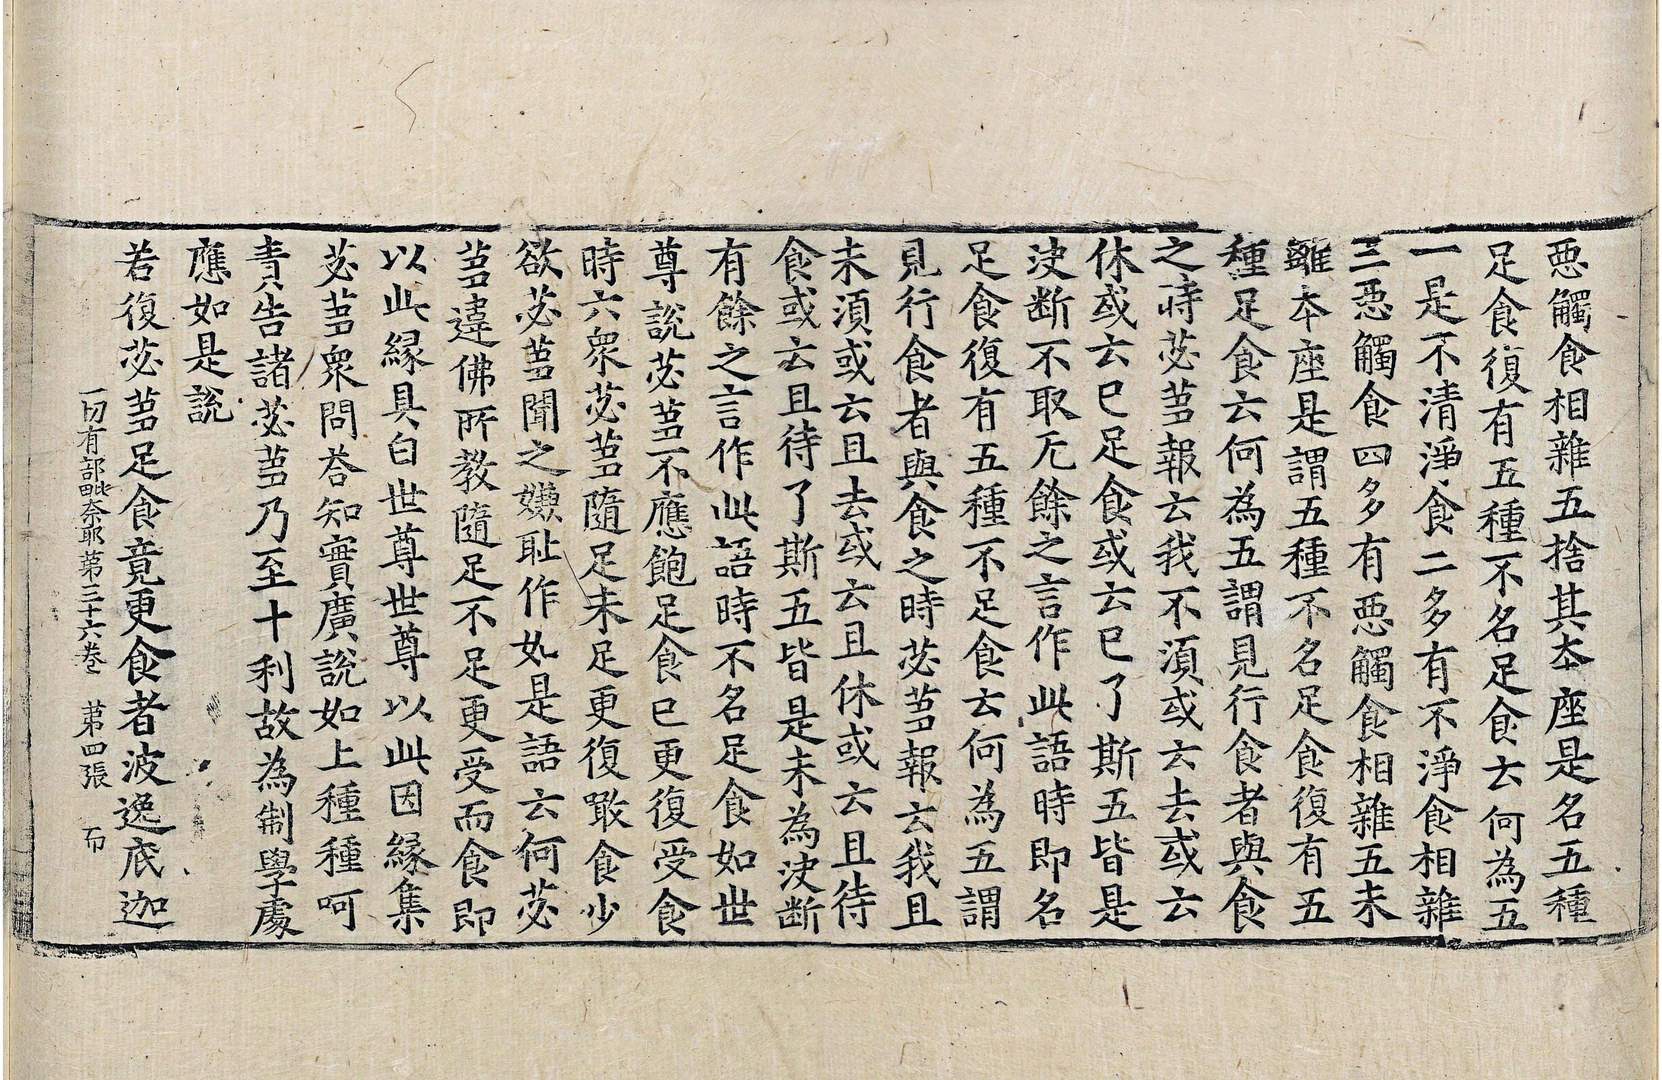 惡觸食相雜五捨其本座是名五種
足食復有五種不名足食云何為五
一是不清淨食二多有不淨食相雜
三惡觸食四多有惡觸食相雜五未
離本座是謂五種不名足食復有五
種足食云何為五謂見行食者與食
之時苾芻報云我不須或云去或云
休或云已足食或云已了斯五皆是
決断不取无餘之言作此語時即名
足食復有五種不足食云何為五謂
見行食者與食之時苾芻報云我且
未須或云且去或云且休或云且待
食或云且待了斯五皆是未為決断
有餘之言作此語時不名足食如世
尊說苾芻不應飽足食已更復受食
時六衆苾芻隨足未足更復噉食少
欲苾芻聞之嫌耻作如是語云何苾
芻違佛所教隨足不足更受而食即
以此緣具白世尊世尊以此因緣集
苾芻衆問荅知實廣說如上種種呵
責告諸苾芻乃至十利故為制學處
應如是說
若復苾芻足食竟更食者波逸底迦
一切有部毗奈耶苐三十六卷 苐四張 㠯